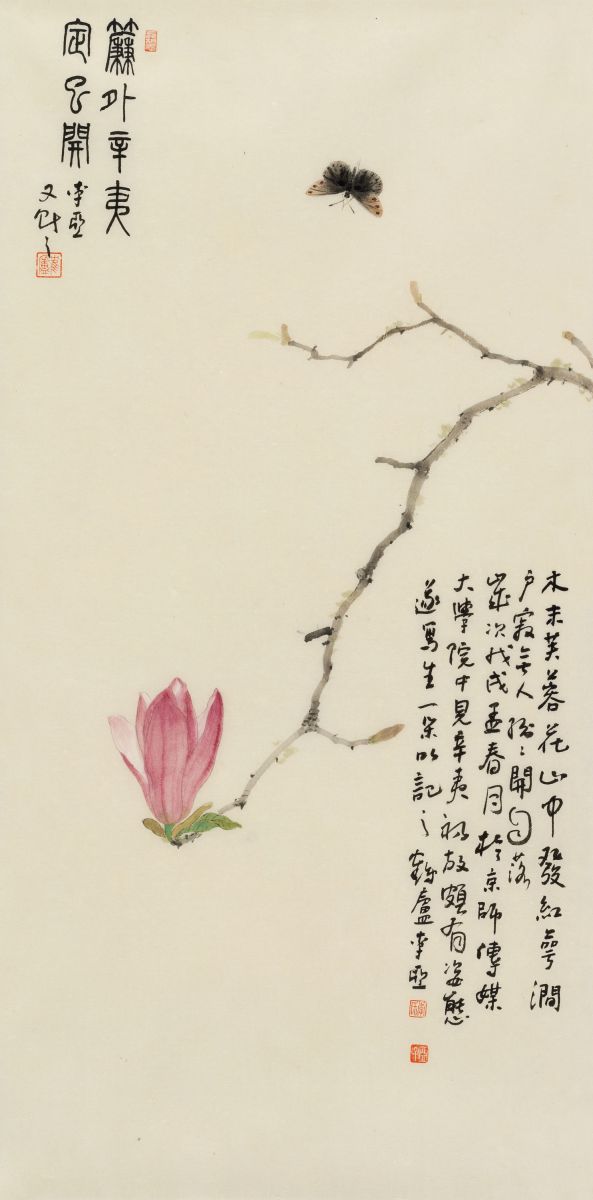 簾外辛夷
定已開
李亞
又
木末芙蓉花山中發紅萼澗
戶寂無人紛〻開自落
歲次戊戌孟春月於京師傳媒
大學院中見辛夷初放頗有姿態
遂寫生一朵以記之鶴廬李亞